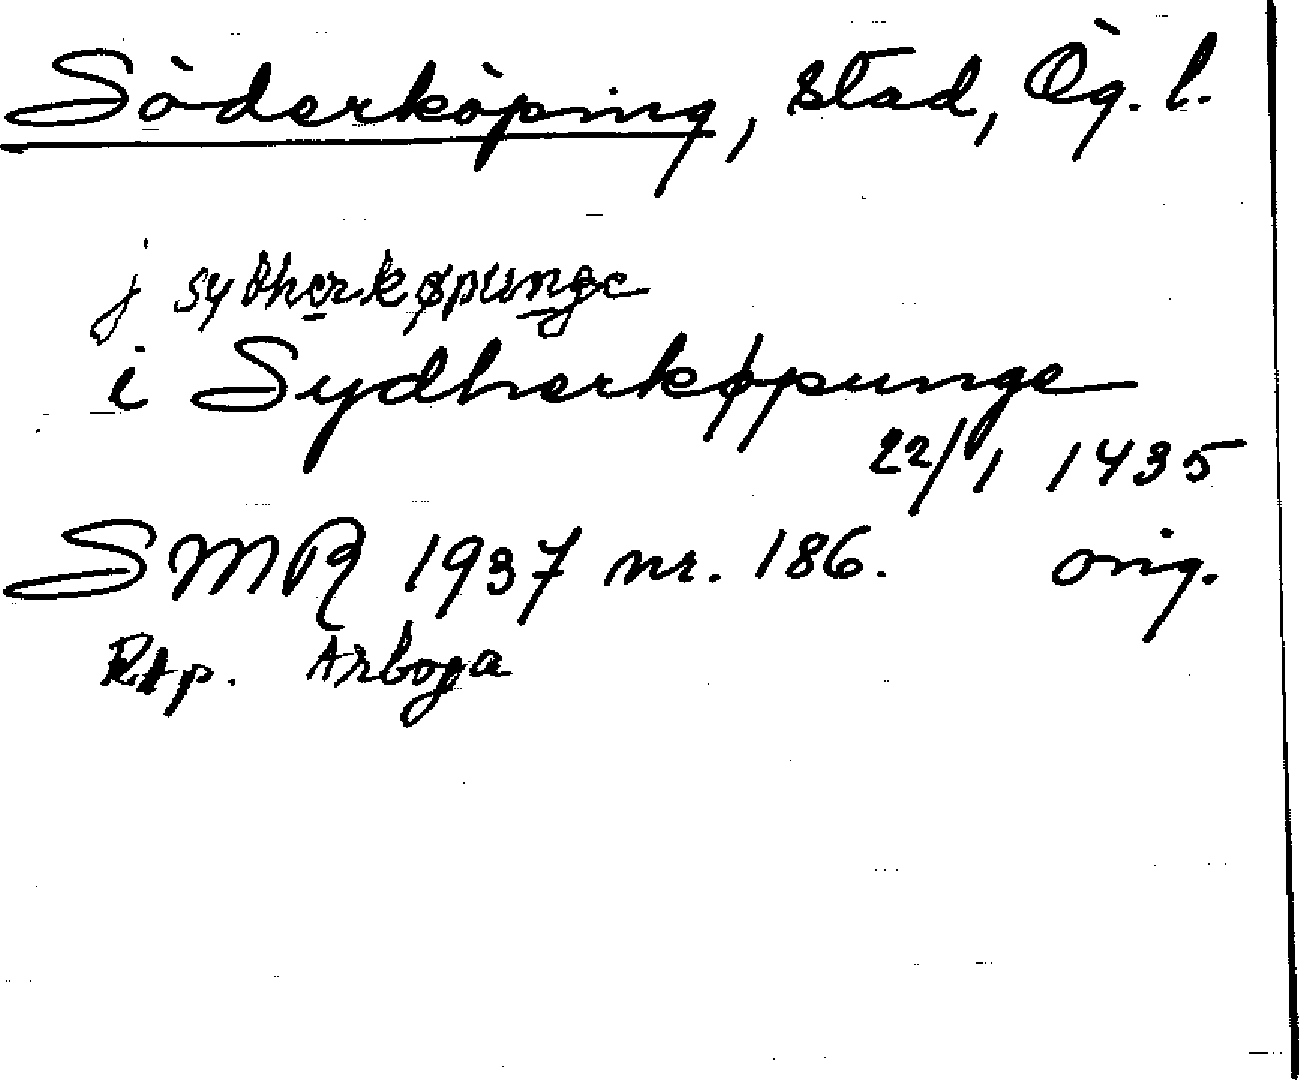 Söderköping, stad, Ög. l.
j sydherkøpunge
i Sydherkøpunge
22/1 1435
SMR 1937 nr. 186. orig.
Rap. Arboga